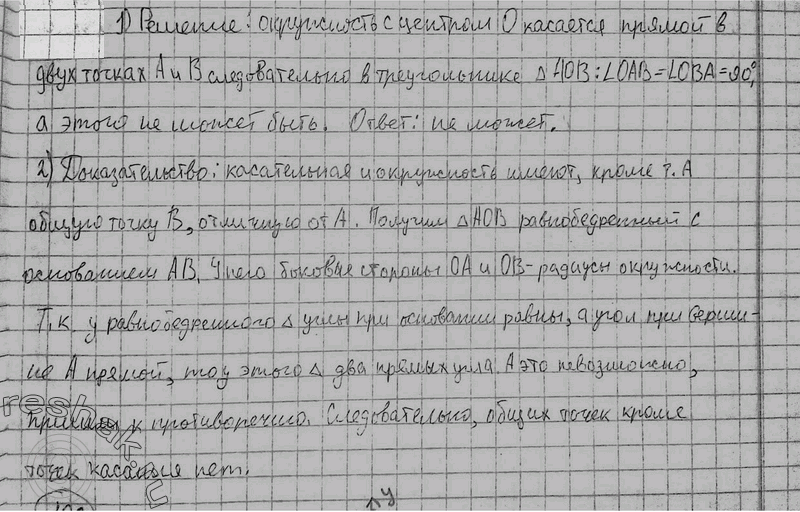 1) Решение: окружность с центром O касается прямой в
двух точках A и B следовательно в треугольнике △AOB: ∠OAB=∠OBA=90°,
а этого не может быть. Ответ: не может.
2) Доказательство: касательная и окружность имеют, кроме т. A
общую точку B, отличную от A. Получим △AOB равнобедренный с
основанием AB. У него боковые стороны OA и OB-радиусы окружности.
Т.к. у равнобедренного △ углы при основании равны, а угол при верши-
не A прямой, то у этого △ два прямых угла. А это невозможно,
пришли к противоречию. Следовательно, общих точек кроме
точек касания нет.
reshak
y